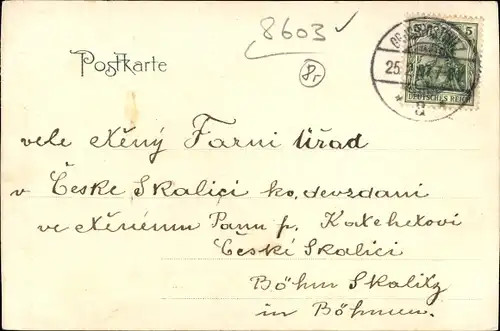 8603
8-
5
25.
DEUTSCHES REICH
a
Postkarte
vele ctěný Farni Úřad
v České Skalici ko, devzdani
ve ctěnému Panu p. Katehetovi
České Skalici
Böhm Skalitz
in Böhmen.